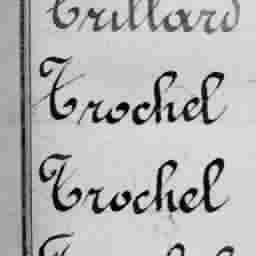 Trillard
Trochel
Trochel